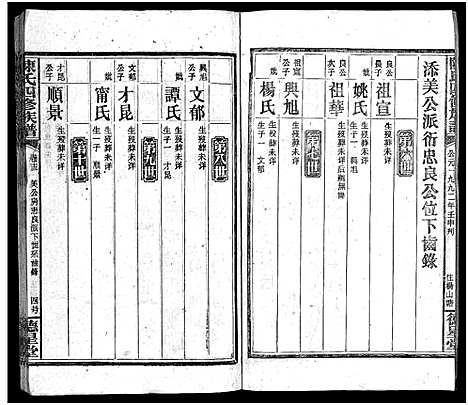 公元一九九二年壬申刋
德星堂
添美公派衍忠良公位下齒錄
第六世
良公子
祖宣
生歿葬未詳
姚氏
生歿葬未詳
生子一 興旭
良公子
祖華
生歿葬未詳
第七世
興旭
生歿葬未詳
楊氏
生歿葬未詳
生子一 文郁
第八世
興旭公子
文郁
生歿葬未詳
譚氏
生歿葬未詳
生子 才昆
第九世
才昆
生歿葬未詳
甯氏
生歿葬未詳
生一子 順景
第十世
才昆公子
順景
生歿葬未詳
陳氏四修族譜
美公房忠良派下齒錄
德星堂